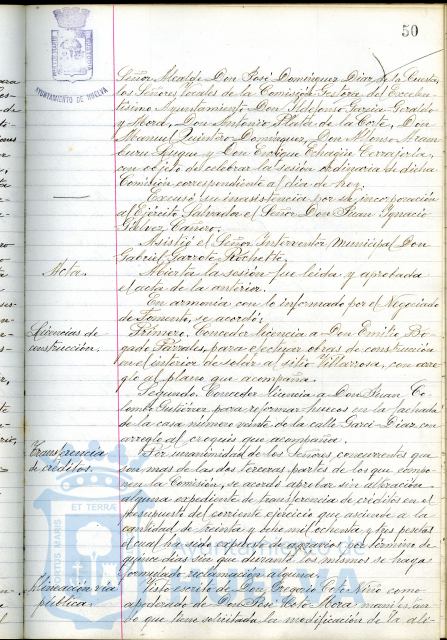 50
AYUNTAMIENTO DE HUELVA
Señor Alcalde Don José Domínguez Díaz de la Cuesta,
los Señores Vocales de la Comisión Gestora del Excelen-
tísimo Ayuntamiento Don Ildefonso García Geraldo
y Mora, Don Antonio Plata de la Corte, Don
Manuel Quintero Domínguez, Don Alfonso Aram-
buru y Don Enrique
con objeto de celebrar la sesión ordinaria de dicha
Comisión correspondiente al día de hoy.
Excusó su inasistencia por su incorporación
al Ejército Salvador el Señor Don Juan Ignacio
Gálvez Cañero.
Asistió el Señor Interventor Municipal Don
Gabriel Garrote Rochette.
Acta.
Abierta la sesión fue leída y aprobada
el acta de la anterior.
En armonía con lo informado por el Negociado
de Fomento, se acordó:
Licencias de
construcción.
Primero. Conceder licencia a Don Emilio Bo-
gado Parrales, para efectuar obras de construcción
en el interior de solar al sitio Villarrosa, con arre-
glo al plano que acompaña.
Segundo. Conceder licencia a Don Juan Co-
lombo Gutiérrez para reformar huecos en la fachada
de la casa número veinte de la calle Garci-Díaz, con
arreglo al croquis que acompaña.
Transferencia
de créditos.
Por unanimidad de los Señores concurrentes que
son mas de las dos terceras partes de los que compo-
nen la Comisión, se acordó aprobar sin alteración
alguna expediente de transferencia de créditos en el
presupuesto del corriente ejercicio que asciende a la
cantidad de treinta y seis mil ochenta y tres pesetas
el cual ha sido expuesto al vecindario por término de
quince días sin que durante los mismos se haya
formulado reclamación alguna.
Alineación vía
pública.
Visto escrito de Don Gregorio Coto Niño como
apoderado de Don José Coto Mora manifestan-
do que tiene solicitada la modificación de la ali-
PORTUS MARIS
ET TERRA
Ayuntamiento de
HUELVA